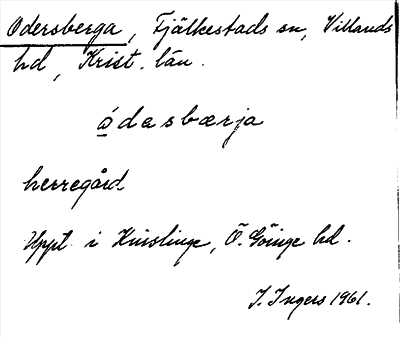 Odersberga, Fjälkestads sn, Villands
hd, Krist. län.
ó̲dasbærja
herregård
Uppt. i Knislinge, Ö. Göinge hd.
I. Ingers 1961.